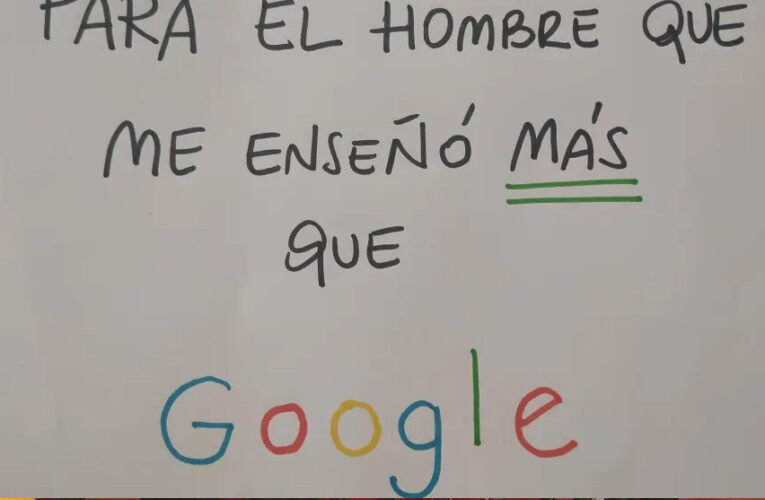 PARA EL HOMBRE QUE
ME ENSEÑÓ MÁS
QUE
Google